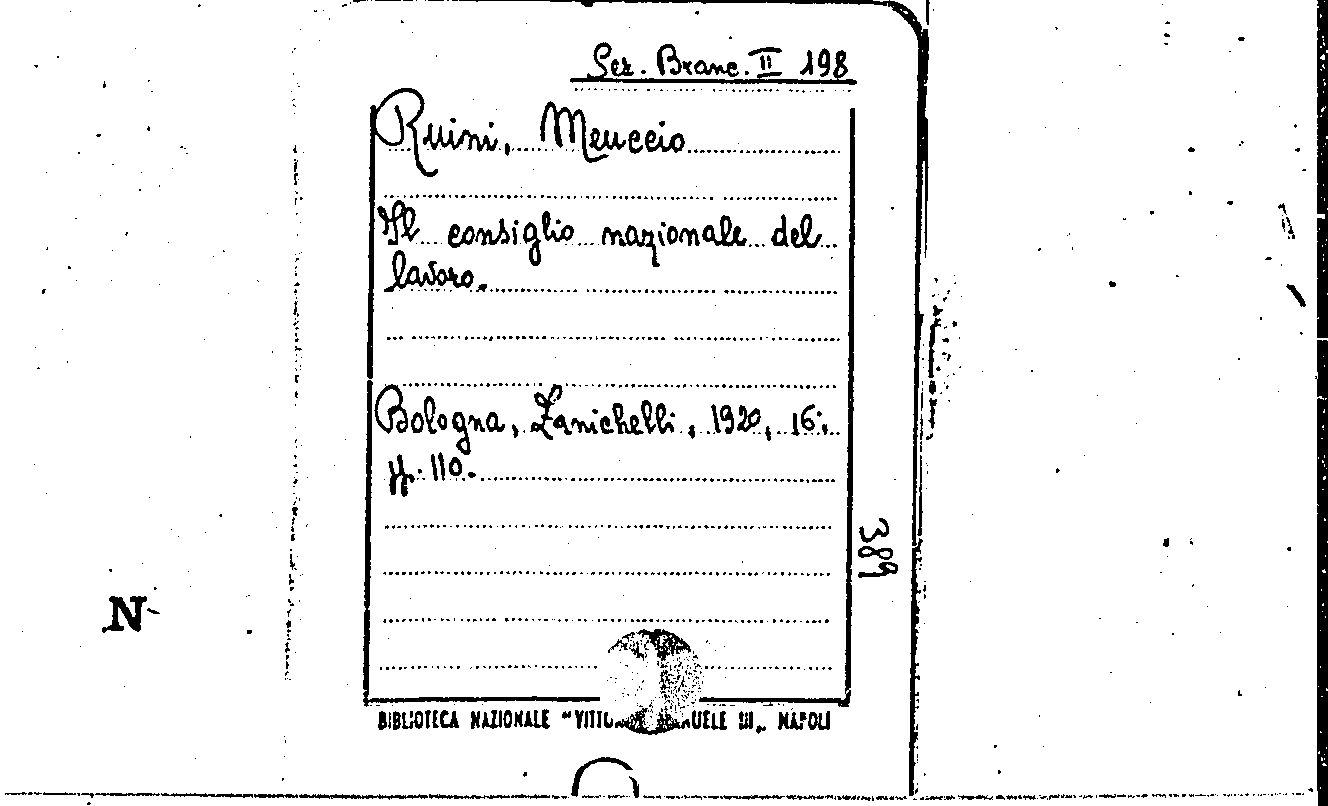 Sez. Branc. II 198
Ruini, Meuccio
Il consiglio nazionale del
lavoro.
Bologna, Zanichelli, 1920, 16°,
pp. 110.
389
N
BIBLIOTECA NAZIONALE "VITTO UELE III„ NAPOLI